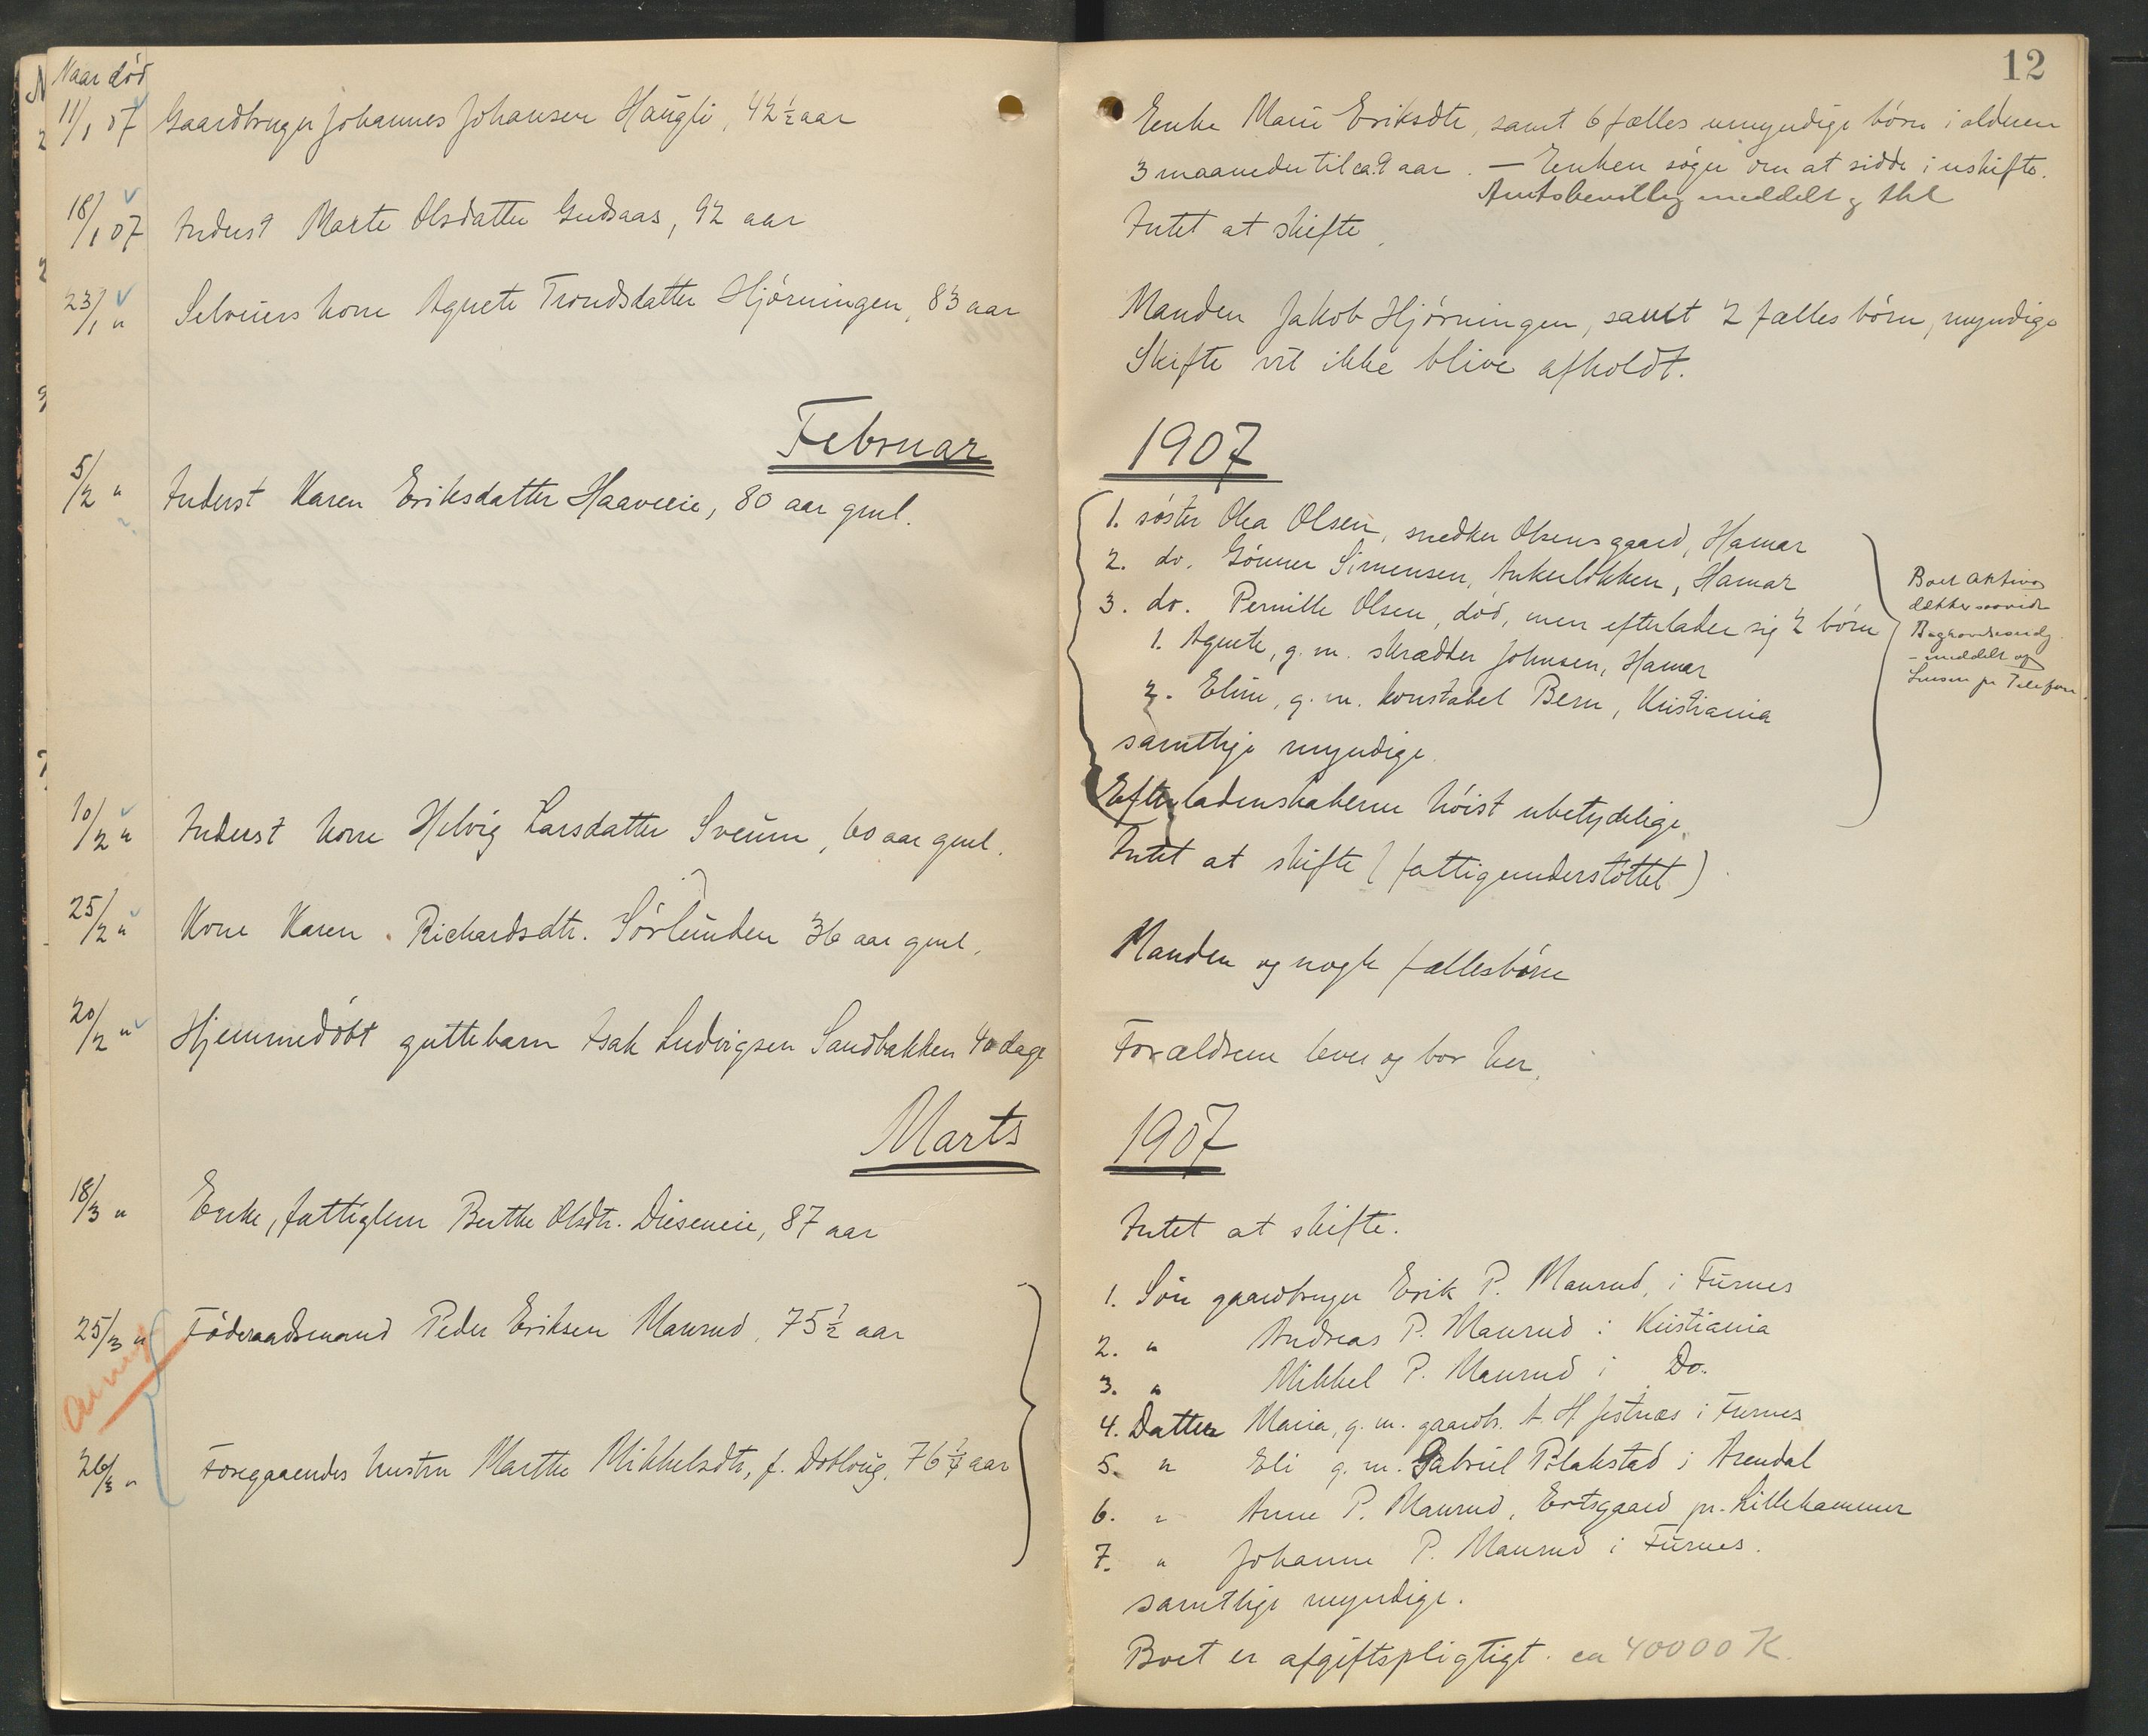 Naar død
11/1 07 Gaardbruger Johannes Johansen Haugli, 42 ½ aar
18/1 07 Inderst Marte Olsdatter Gudsaas, 92 aar
23/1 " Selveiers kone Agnete Trondsdatter Hjørningen, 83 aar
Februar
5/2 " Inderst Karen Eriksdatter Haaveeie, 80 aar gml.
10/2 " Inderst kone Helvig Larsdatter Sveum, 60 aar gml.
25/2 " Kone Karen Richardsdtr. Sørlunden 36 aar gml.
20/2 " Hjemmedøbt guttebarn Isak Ludvigsen Sandbakken 40 dage
Marts
18/3 " Enke, fattiglem Berthe Olsdtr. Dieseneie, 87 aar
25/3 " Føderaadsmand Peder Eriksen Maurud, 75 ½ aar
26/3 " Foregaaendes hustru Marthe Mikkelsdtr, f. Dobloug, 76 ¼ aar
12
Enke Marie Eriksdtr, samt 6 fælles umyndige børn i alderen
3 maaneder til ca. 9 aar. — Enken søger om at sidde i uskifte.
Amtsbevillg meddelt
Intet at skifte
Manden Jakob Hjørningen, samt 2 fælles børn, myndige
Skifte vil ikke blive afholdt.
1907
1. søster Olea Olsen, snedker Olsens gaard, Hamar
2. do. Gönner Simensen, Ankerløkken, Hamar
3. do. Pernille Olsen, død, men efterlader sig 2 børn
1. Agnete, g. m. skrædder Johnsen, Hamar
2. Eline, g. m. konstabel Bern, Kristiania
samtlige myndige.
Efterladenskaberne høist ubetydelige.
Boets aktiva
dækker
meddelt
pr Telefon.
Intet at skifte (fattigunderstøttet)
Manden og nogle fællesbørn
Forældrene lever og bor her.
1907
Intet at skifte.
1. Søn gaardbruger Erik P. Maurud, i Furnes
2. " Andreas P. Maurud i Kristiania
3. " Mikkel P. Maurud i Do.
4. Datter Maria, g. m. gaardbr. A. H. Jestnæs i Furnes
5. " Eli g. m. Gabriel Pilakstad i Arendal
6. " Anne P. Maurud, Ertsgaard pr. Lillehammer
7. " Johanne P. Maurud i Furnes.
samtlige myndige.
Boet er afgiftspligtigt. ca 40000 K.